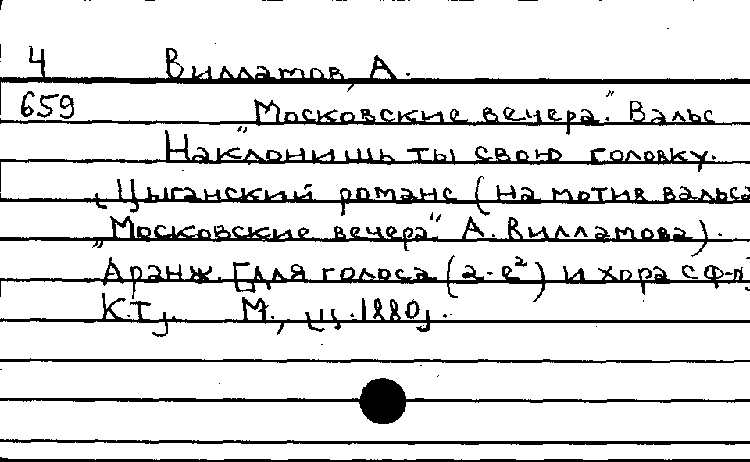 4 Вилламов, А.
659 "Московские вечера". Вальс
Наклонишь ты свою головку.
Цыганский романс (на мотив вальса
„Московские вечера" А. Вилламова).
Аранж. [для голоса (a-e²) и хора с ф-п]
К.Т. М., ц. 1880.